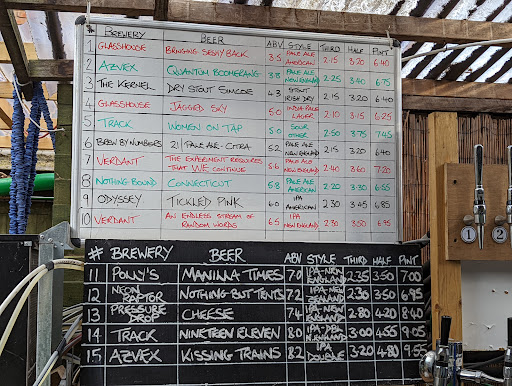 # BREWERY BEER ABV STYLE THIRD HALF PINT
1 GLASSHOUSE BRINGING SESHY BACK 3.5 PALE ALE AMERICAN 2.15 3.20 6.40
2 AZVEX QUANTUM BOOMERANG 3.8 PALE ALE NEW ENGLAND 2.25 3.40 6.75
3 THE KERNEL DRY STOUT SIMCOE 4.3 STOUT IRISH DRY 2.15 3.20 6.40
4 GLASSHOUSE JAGGED SKY 5.0 INDIA PALE LAGER 2.10 3.15 6.25
5 TRACK WOMEN ON TAP 5.0 SOUR OTHER 2.50 3.75 7.45
6 BREW BY NUMBERS 21 | PALE ALE - CITRA 5.2 PALE ALE NEW ENGLAND 2.15 3.20 6.40
7 VERDANT THE EXPERIMENT REQUIRES THAT WE CONTINUE 5.6 PALE ALE NEW ENGLAND 2.40 3.60 7.20
8 NOTHING BOUND CONNECTICUT 5.8 PALE ALE AMERICAN 2.20 3.30 6.55
9 ODYSSEY TICKLED PINK 6.0 IPA AMERICAN 2.30 3.45 6.85
10 VERDANT AN ENDLESS STREAM OF RANDOM WORDS 6.5 IPA NEW ENGLAND 2.30 3.50 6.95
# BREWERY BEER ABV STYLE THIRD HALF PINT
11 POLLY'S MANINNA TIMES 7.0 IPA-NEW ENGLAND 2.35 3.50 7.00
12 NEON RAPTOR NOTHING BUT TENTS 7.2 IPA-NEW ZEALAND 2.30 3.50 6.95
13 PRESSURE DROP CHEESE 7.4 IPA-NEW ENGLAND 2.80 4.20 8.40
14 TRACK NINETEEN ELEVEN 8.0 IPA-DBL N.ENGLAND 3.00 4.55 9.05
15 AZVEX KISSING TRAINS 8.2 IPA DOUBLE 3.20 4.80 9.55
1 2